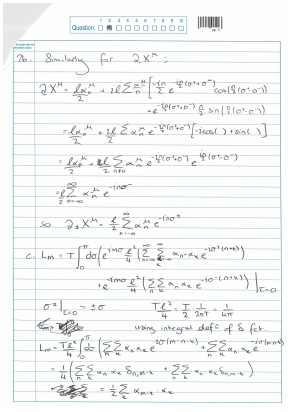 Question: 1 2 3 4 5 6 7 8 9 10
7b. Similarly for ∂X^μ:
∂X^μ = lα_0^μ/2 + il Σ α_n^μ/n [ -in/2 e^{-in/2(σ^+ + σ^-)} cos(n/2(σ^+ - σ^-))
+ e^{-in/2(σ^+ + σ^-)} n/2 sin(n/2(σ^+ - σ^-))
= lα_0^μ/2 + il/2 Σ α_n^μ e^{-in/2(σ^+ + σ^-)} [-i cos( ) + sin( )]
= lα_0^μ/2 + l/2 Σ_{n≠0} α_n^μ e^{-in/2(σ^+ + σ^-)} e^{in/2(σ^+ - σ^-)}
= l/2 Σ_{n=-∞}^{∞} α_n^μ e^{-inσ^-}
so ∂_± X^μ = l/2 Σ_{n=-∞}^{∞} α_n^μ e^{-inσ^±}
c. L_m = T ∫_0^π dσ ( e^{imσ} l²/4 ( Σ_n Σ_k α_n·α_k e^{-iσ^+(n+k)} )
+ e^{-imσ} l²/4 ( Σ_n Σ_k α_n·α_k e^{-iσ^-(n+k)} ) |_{τ=0}
σ^±|_{τ=0} = ±σ Tl²/4 = T/2 · 1/2πT = 1/4π
using integral defⁿ of δ fct.
L_m = Tl²/4 ∫_0^π dσ ( Σ_n Σ_k α_n·α_k e^{iσ(m-n-k)} + Σ_n Σ_k α_n·α_k e^{-iσ(m-n-k)}
= 1/4 ( Σ_n Σ_k α_n·α_k δ_{n,m-k} + Σ_n Σ_k α_n·α_k δ_{n,m-k} )
= 1/2 Σ_k α_{m-k}·α_k